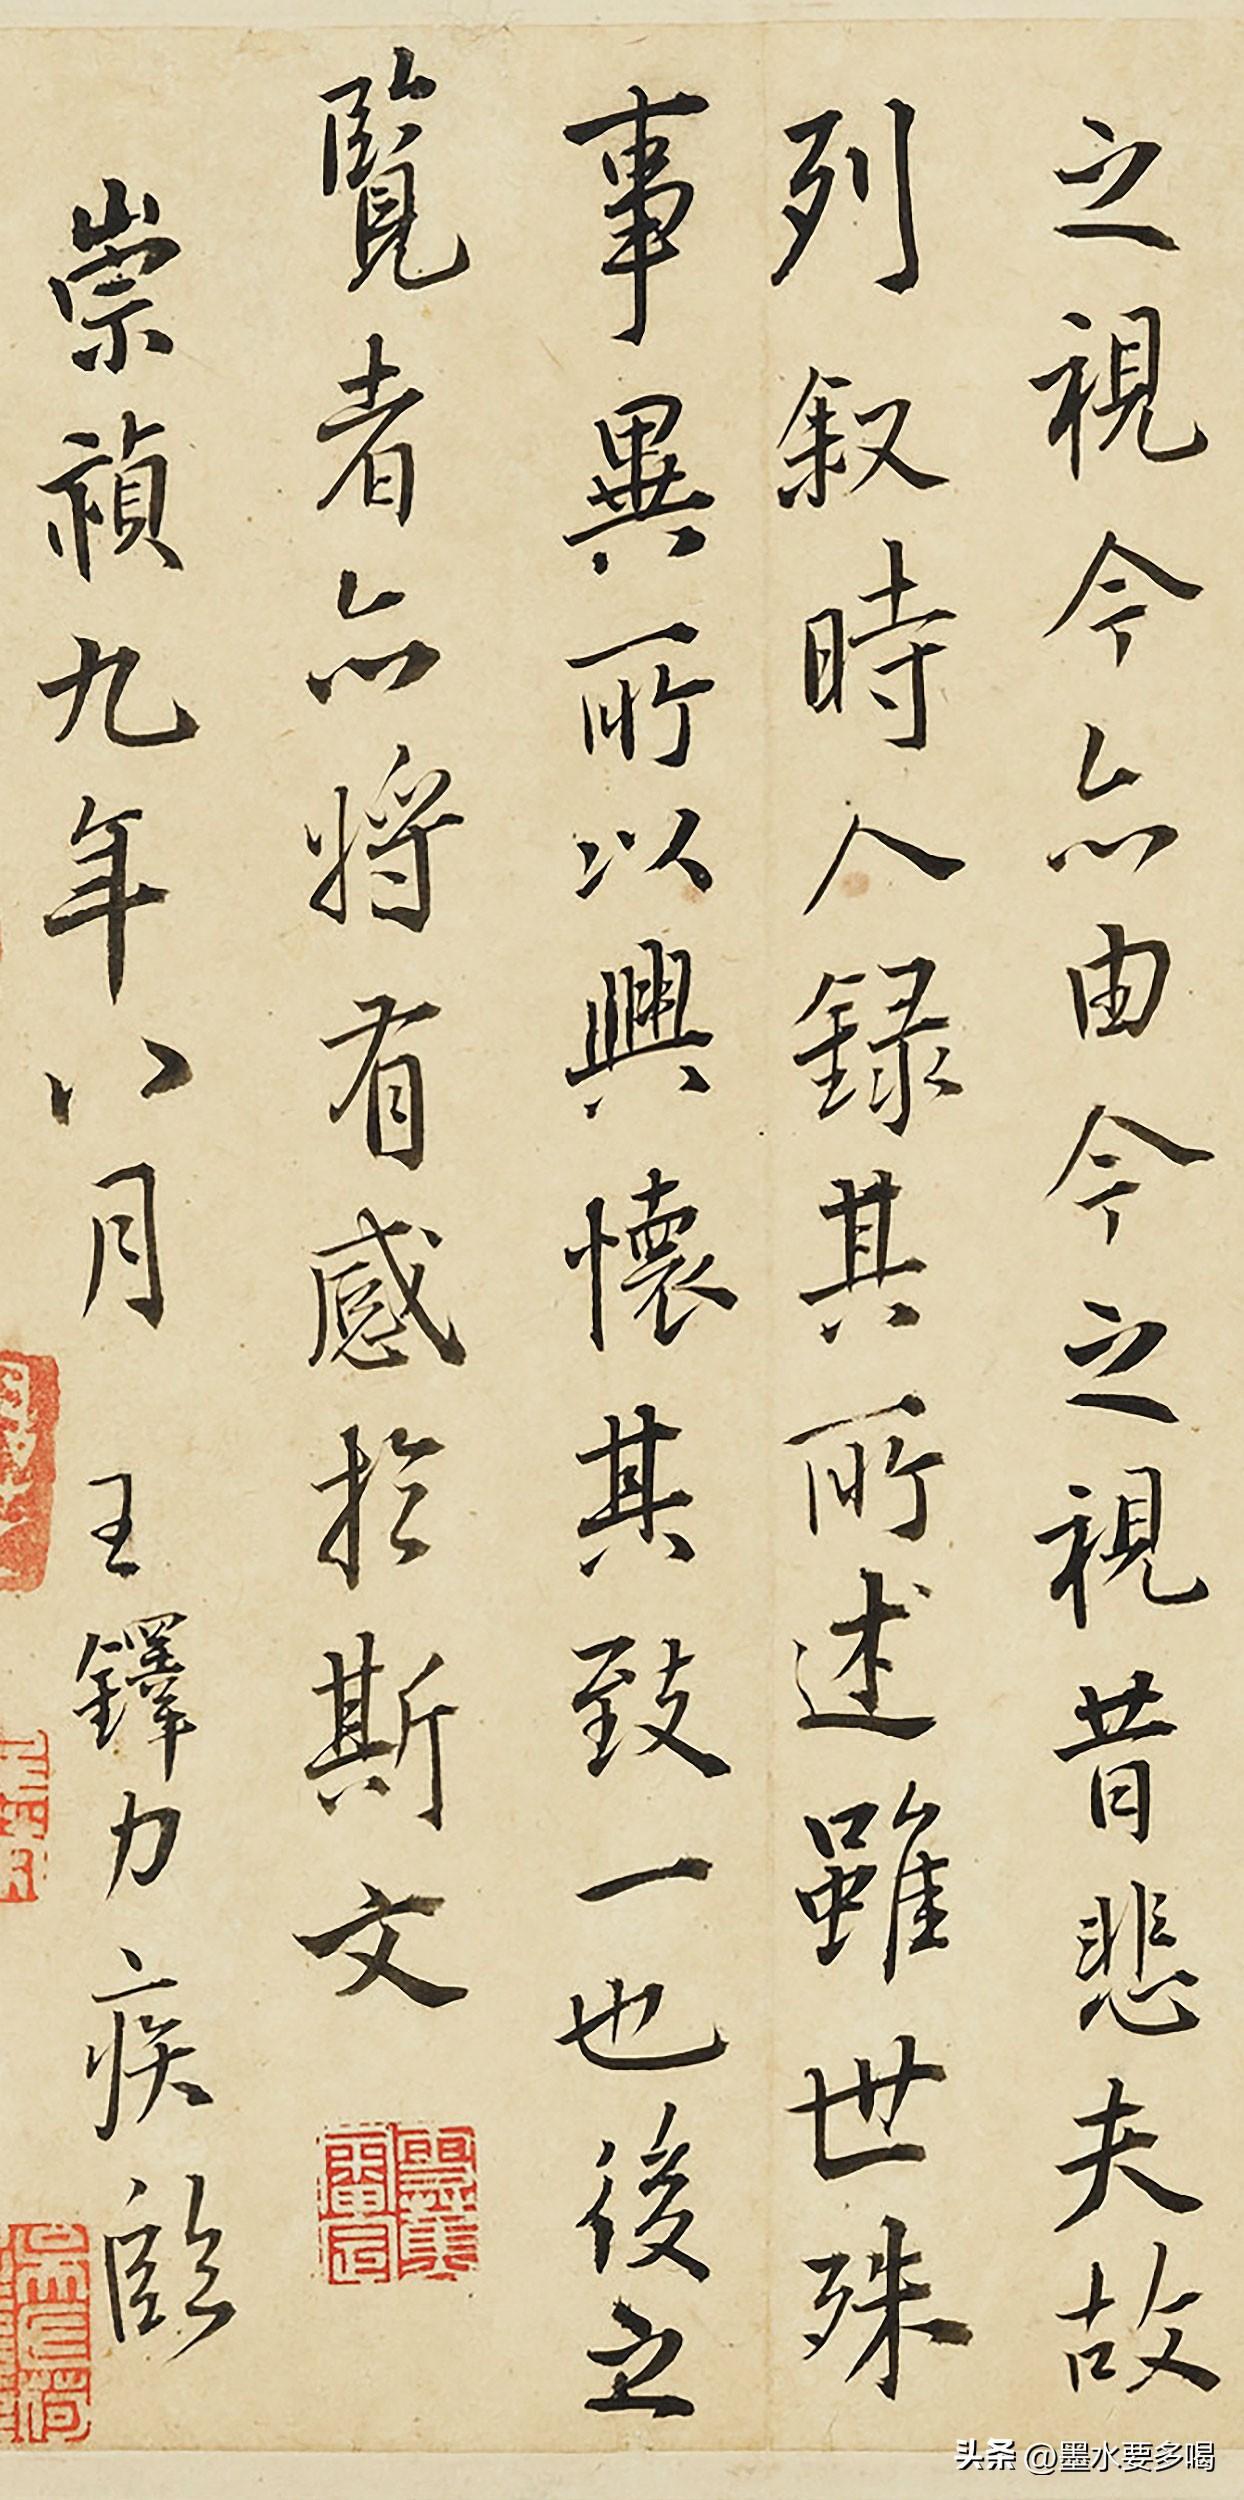 之視今亦由今之視昔悲夫故
列叙時人録其所述雖世殊
事異所以興懷其致一也後之
覽者亦將有感於斯文
崇禎九年八月 王鐸力疾臨
头条 @墨水要多喝